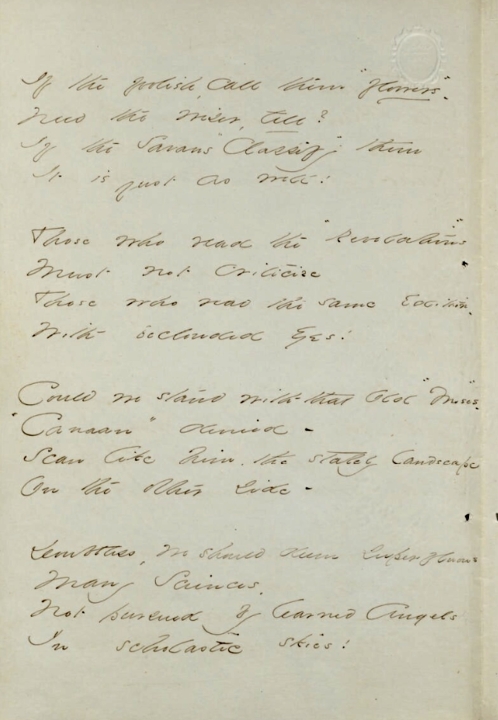 If the foolish, call them "flowers" -
Need the wiser, tell?
If the Savans "Classify" them
It is just as well!
Those who read the "Revelations"
Must not criticise
Those who read the same Edition -
With beclouded Eyes!
Could we stand with that Old "Moses" -
"Canaan" denied -
Scan like him, the stately landscape
On the other side -
Doubtless, we should deem superfluous
Many Sciences,
Not pursued by learned Angels
In scholastic skies!